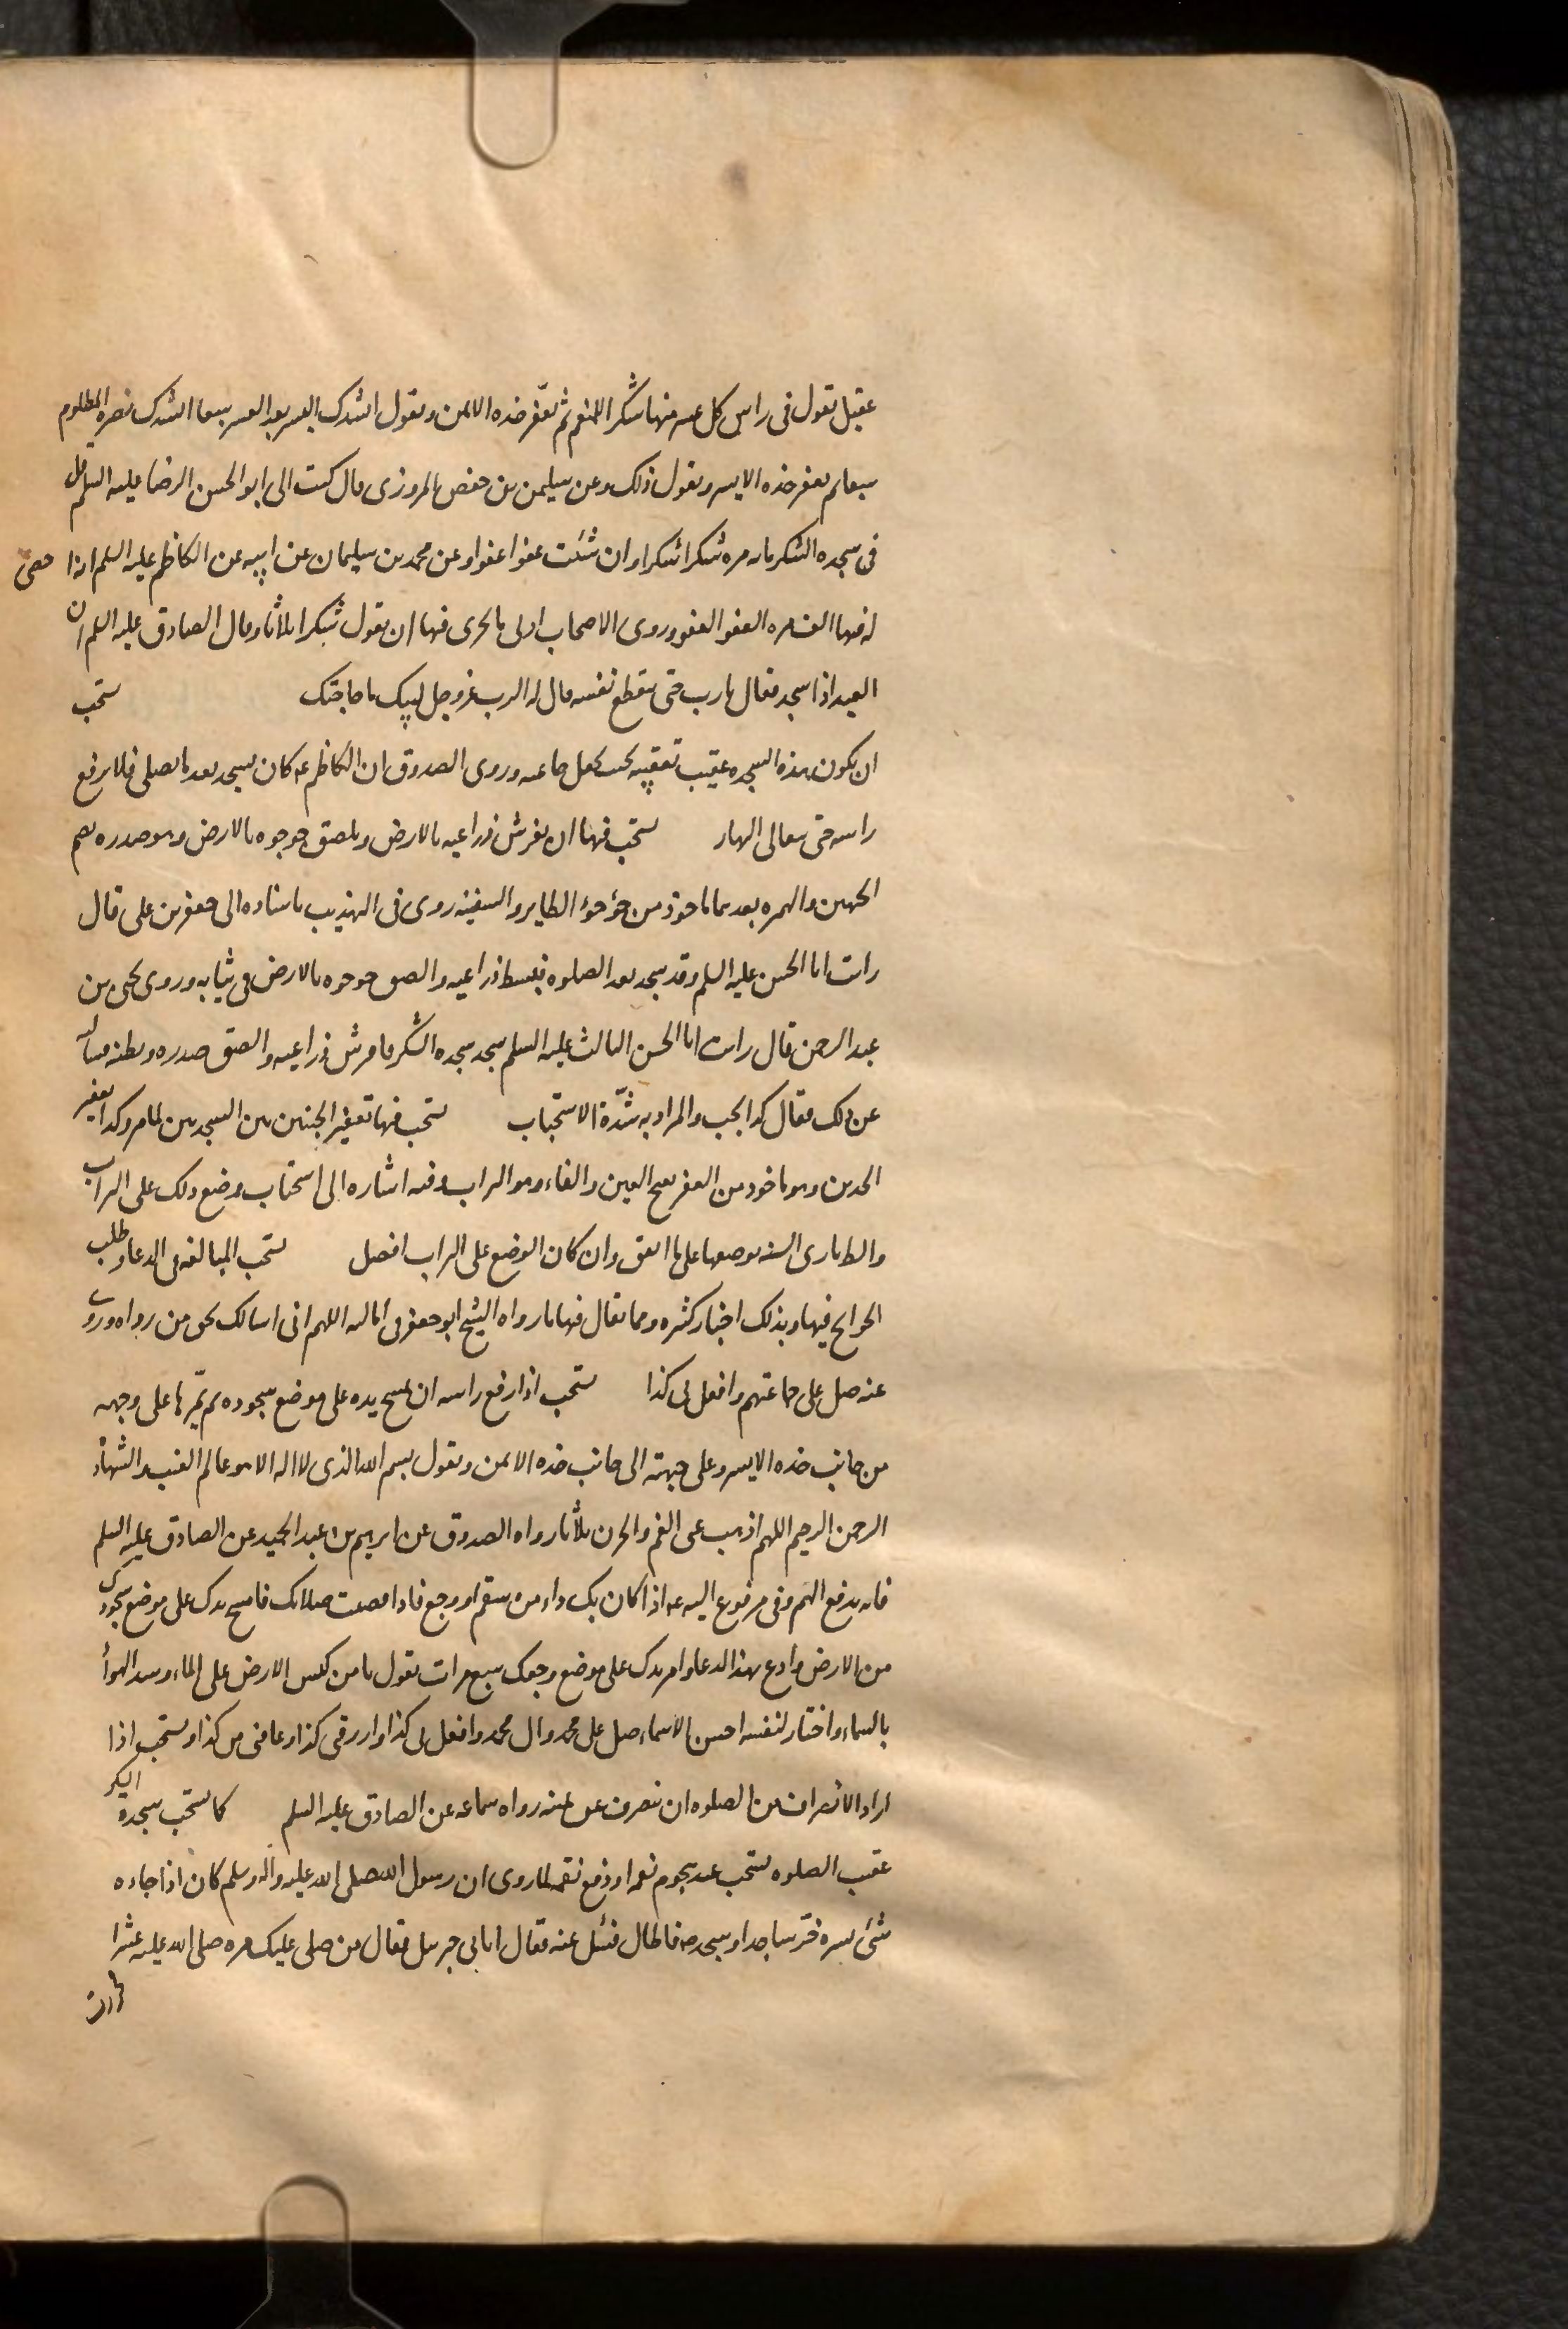 عقيل تقول فى راس كل عسر منها شكرا للمنعم ثم تعفر خده الايمن وتقول انشدك اليسر بعد العسر سبعا انشدك نصرة المظلوم
سبعا ثم تعفر خده الايسر وتقول ذلك وعن سليمن بن حفص المروزى قال كتب الى ابو الحسن الرضا عليه السلم قل
فى سجده الشكر مايه مره شكرا شكرا وان شئت عفوا عفوا وعن محمد بن سليمان عن ابيه عن الكاظم عليه السلم انه احصى
له فيها الف مره العفو العفو وروى الاصحاب ادنى ما يجزى فيها ان يقول شكرا ثلاثا وقال الصادق عليه السلم ان
العبد اذا سجد فقال يا رب حتى ينقطع نفسه قال له الرب عز وجل لبيك ما حاجتك ستحب
ان يكون هذه السجده عقيب تعقيبه بحيث يجعل خاتمته وروى الصدوق ان الكاظم عه كان يسجد بعد ما يصلى فلا يرفع
راسه حتى يتعالى النهار يستحب فيها ان يفرش ذراعيه بالارض ويلصق جوجوه بالارض وهو صدره بضم
الجيمين والهمزه بعدهما ماخوذ من جؤجؤ الطاير والسفينه روى فى التهذيب باسناده الى جعفر بن على قال
رايت ابا الحسن عليه السلم وقد سجد بعد الصلوه فبسط ذراعيه والصق جوجوه بالارض فى ثيابه وروى يحيى بن
عبد الرحمن قال رايت ابا الحسن الثالث عليه السلم سجد سجده الشكر فافرش ذراعيه والصق صدره وبطنه فسالته
عن ذلك فقال كذا يجب والمراد به شدّة الاستحباب يستحب فيها تعفير الجبينين بين السجدتين لما مر وكذا تعفير
الخدين وهو ماخوذ من العفر بفتح العين والفاء وهو التراب وفيه اشاره الى استحباب وضع ذلك على التراب
والظاهر تادى السنه بوضعها على ما اتفق وان كان الوضع على التراب افضل يستحب المبالغه فى الدعا وطلب
الحوائج فيها وبذلك اخبار كثيره ومما يقال فيها ما رواه الشيخ ابو جعفر فى اماليه اللهم انى اسالك بحق من رواه وروى
عنه صل على جماعتهم وافعل بى كذا يستحب اذا رفع راسه ان يمسح يده على موضع سجوده ثم يمّرها على وجهه
من جانب خده الايسر وعلى جبهته الى جانب خده الايمن ويقول بسم الله الذى لا اله الا هو عالم الغيب والشهادة
الرحمن الرحيم اللهم اذهب عنى الغم والحزن ثلاثا رواه الصدوق عن ابرهيم بن عبد الحميد عن الصادق عليه السلم
فانه يدفع الهم وفى مرفوع اليه عه اذا كان بك داء من سقم او وجع فاذا قضيت صلاتك فامسح يدك على موضع سجودك
من الارض وادع بهذا الدعا وامر يدك على موضع وجعك سبع مرات تقول يا من كبس الارض على الماء وسد الهواء
بالسماء واختار لنفسه احسن الاسماء صل على محمد وال محمد وافعل بى كذا وارزقنى كذا وعافنى من كذا ويستحب اذا
اراد الانصراف من الصلوه ان ينصرف عن يمينه رواه سماعه عن الصادق عليه السلم كما يستحب سجدة الشكر
عقيب الصلوه يستحب عند هجوم نعمه او دفع نقمه لما روى ان رسول الله صلى الله عليه واله وسلم كان اذا جاءه
شئ يسره خر ساجدا وسجد عه فاطال فسئل عنه فقال اتانى جبرئيل فقال من صلى عليك مره صلى الله عليه عشرا